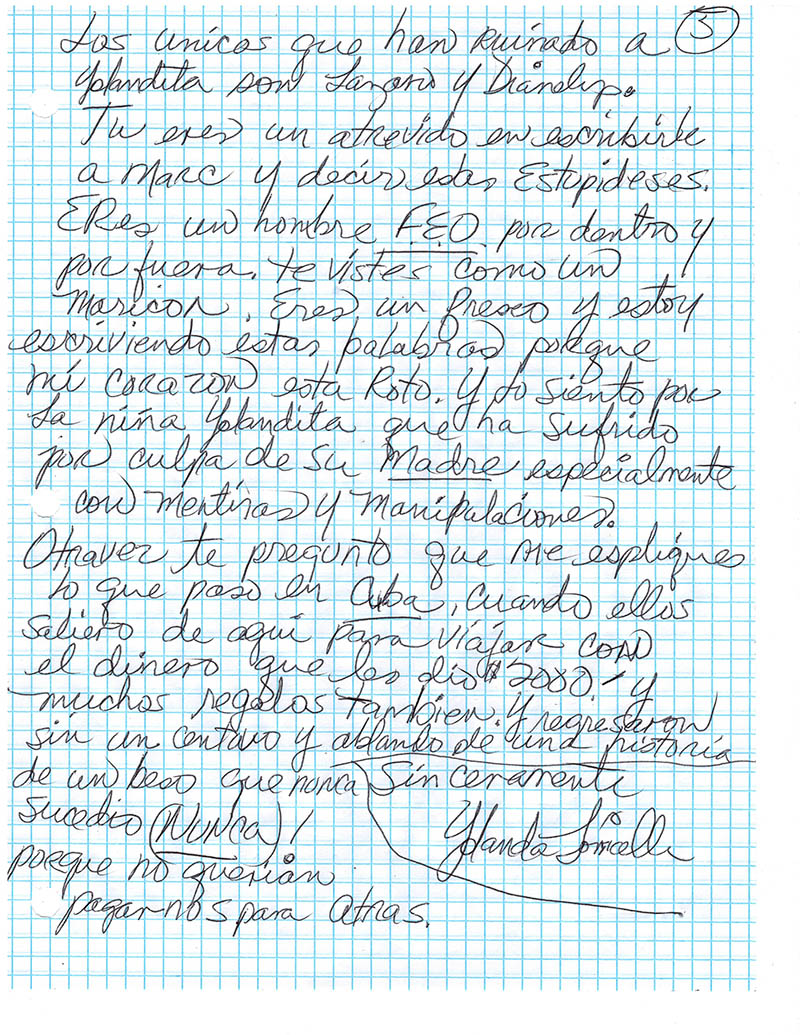 3
Los unicos que han Ruinado a
Yolandita son Lazaro y Dianelys.
Tu eres un atrevido en escribirle
a Marc y decir estas Estupideses.
ERes un hombre F.E.O. por dentro y
por fuera. te vistes como un
Maricon. Eres un Preso y estoy
escriviendo estas palabras porque
mi corazon esta Roto. Y lo siento por
La niña Yolandita que ha sufrido
por culpa de su Madre especialmente
con mentiras y Manipulaciones.
Otravez te pregunto que me espliques
lo que paso en Cuba, cuando ellos
saliero de aqui para viajar con
el dinero que les dio $2000.- y
muchos regalos tambien. Y regresaron
sin un centavo y ablando de una historia
de un beso que nunca
sucedio (NUNCA)!
porque no querian
pagarnos para atras.
Sinceramente
Yolanda